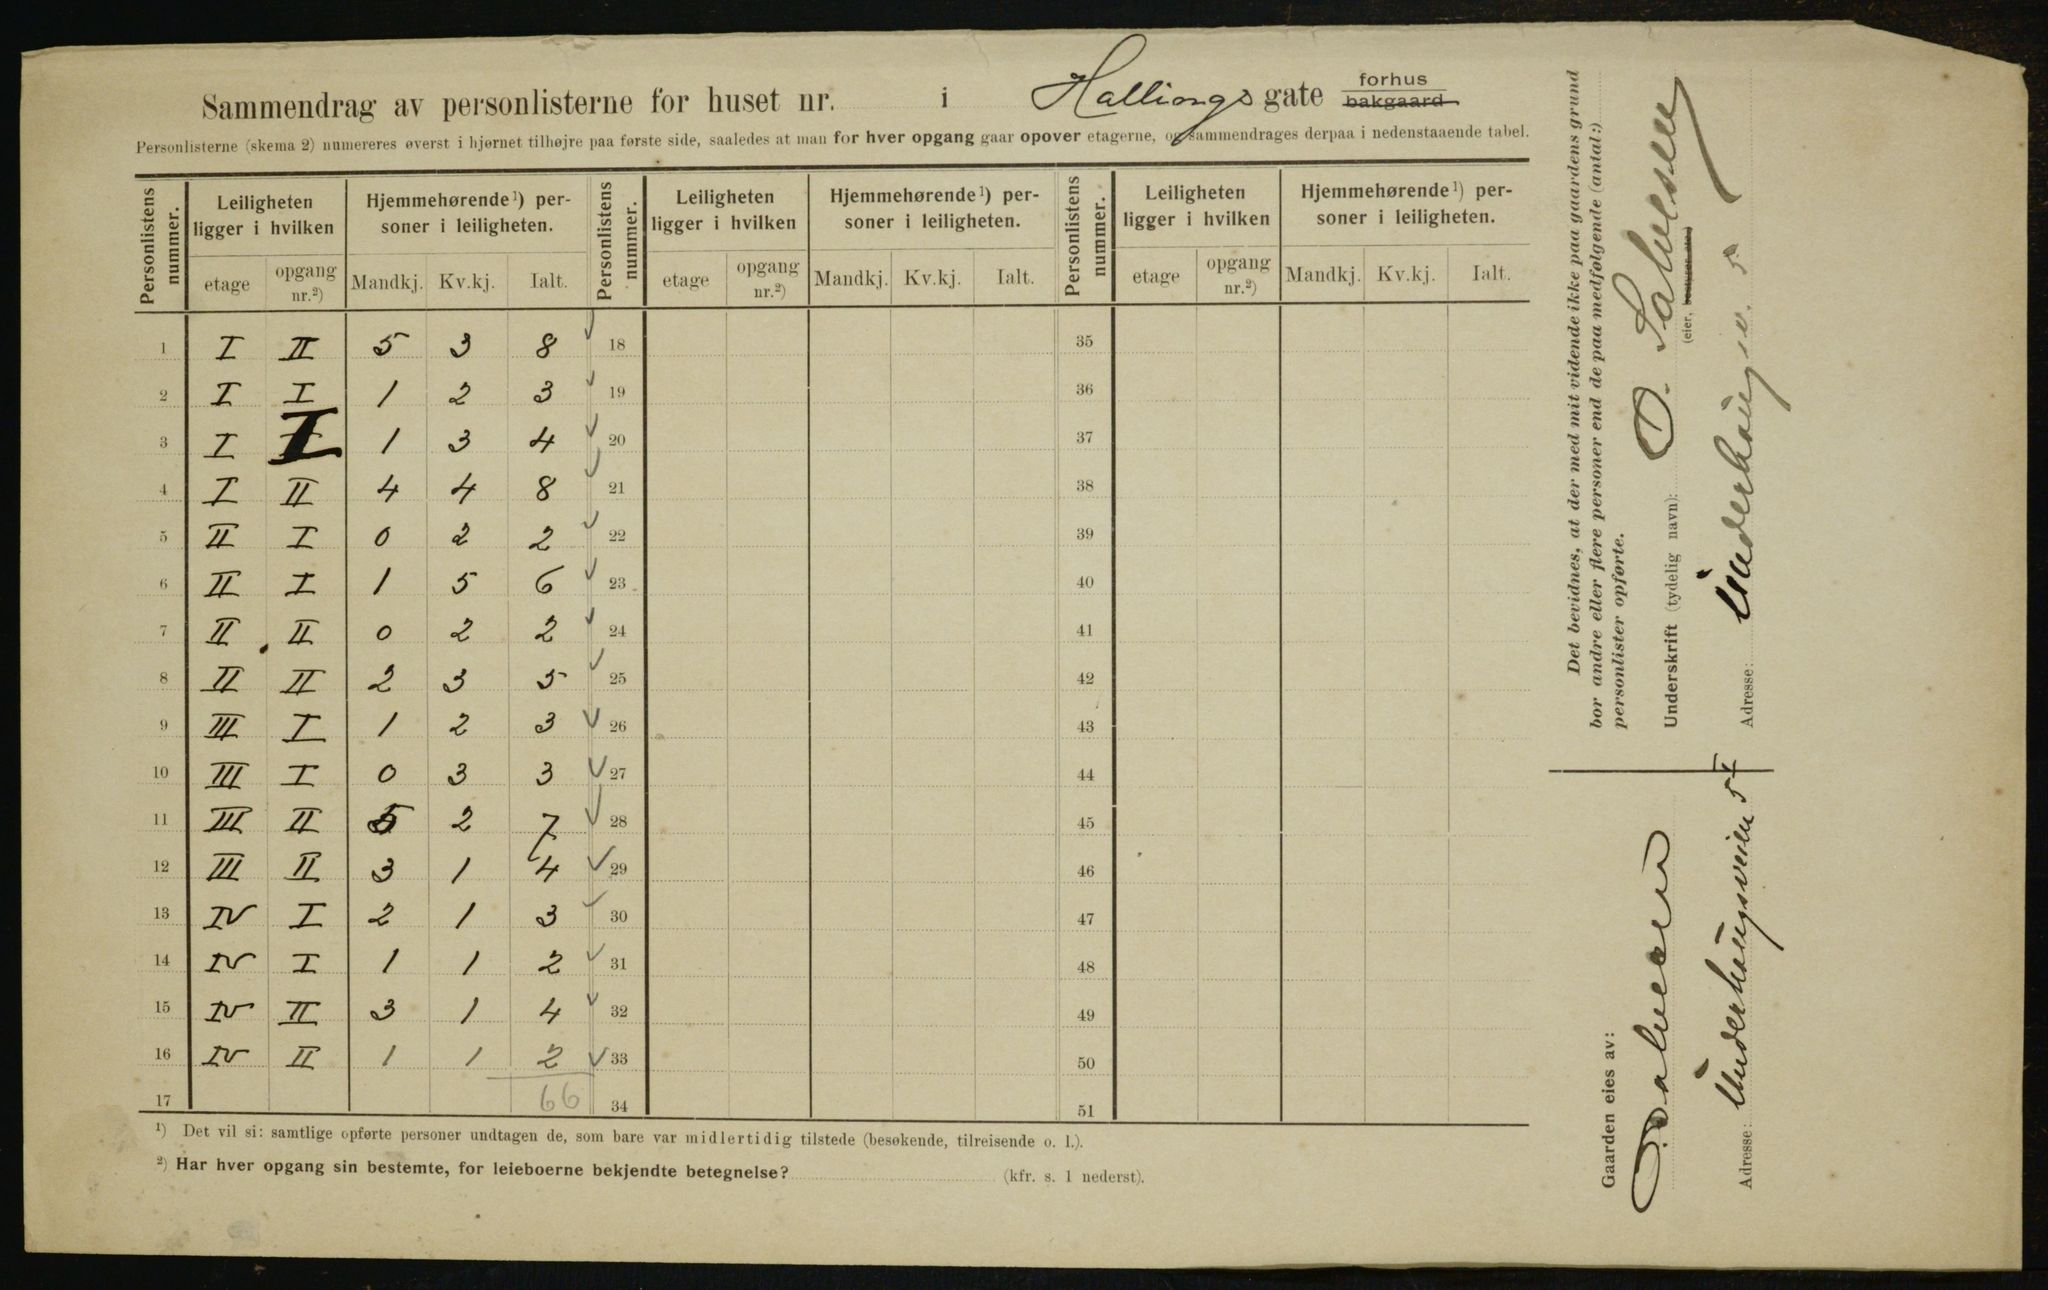 Sammendrag av personlisterne for huset nr. i Hallings gate forhus bakgaard
Personlisterne (skema 2) numereres øverst i hjørnet tilhøjre paa første side, saaledes at man for hver opgang gaar opover etagerne, og sammendrages derpaa i nedenstaaende tabel.
Personlistens nummer. Leiligheten ligger i hvilken Hjemmehørende¹) personer i leiligheten. Personlistens nummer. Leiligheten ligger i hvilken Hjemmehørende¹) personer i leiligheten. Personlistens nummer. Leiligheten ligger i hvilken Hjemmehørende¹) personer i leiligheten.
etage opgang nr.²) Mandkj. Kv.kj. Ialt. etage opgang nr.²) Mandkj. Kv.kj. Ialt. etage opgang nr.²) Mandkj. Kv.kj. Ialt.
1 I II 5 3 8 18 35
2 I I 1 2 3 19 36
3 I I 1 3 4 20 37
4 I II 4 4 8 21 38
5 II I 0 2 2 22 39
6 II I 1 5 6 23 40
7 II II 0 2 2 24 41
8 II II 2 3 5 25 42
9 III I 1 2 3 26 43
10 III I 0 3 3 27 44
11 III II 5 2 7 28 45
12 III II 3 1 4 29 46
13 IV I 2 1 3 30 47
14 IV I 1 1 2 31 48
15 IV II 3 1 4 32 49
16 IV II 1 1 2 33 50
17 66 34 51
¹) Det vil si: samtlige opførte personer undtagen de, som bare var midlertidig tilstede (besøkende, tilreisende o. l.).
²) Har hver opgang sin bestemte, for leieboerne bekjendte betegnelse? (kfr. s. 1 nederst).
Det bevidnes, at der med mit vidende ikke paa gaardens grund
bor andre eller flere personer end de paa medfølgende (antal:)
personlister opførte.
Underskrift (tydelig navn):
(eier, bestyrer etc.)
Adresse: Underhaugsv. 5
Gaarden eies av:
Adresse: Underhaugsveien 5 I